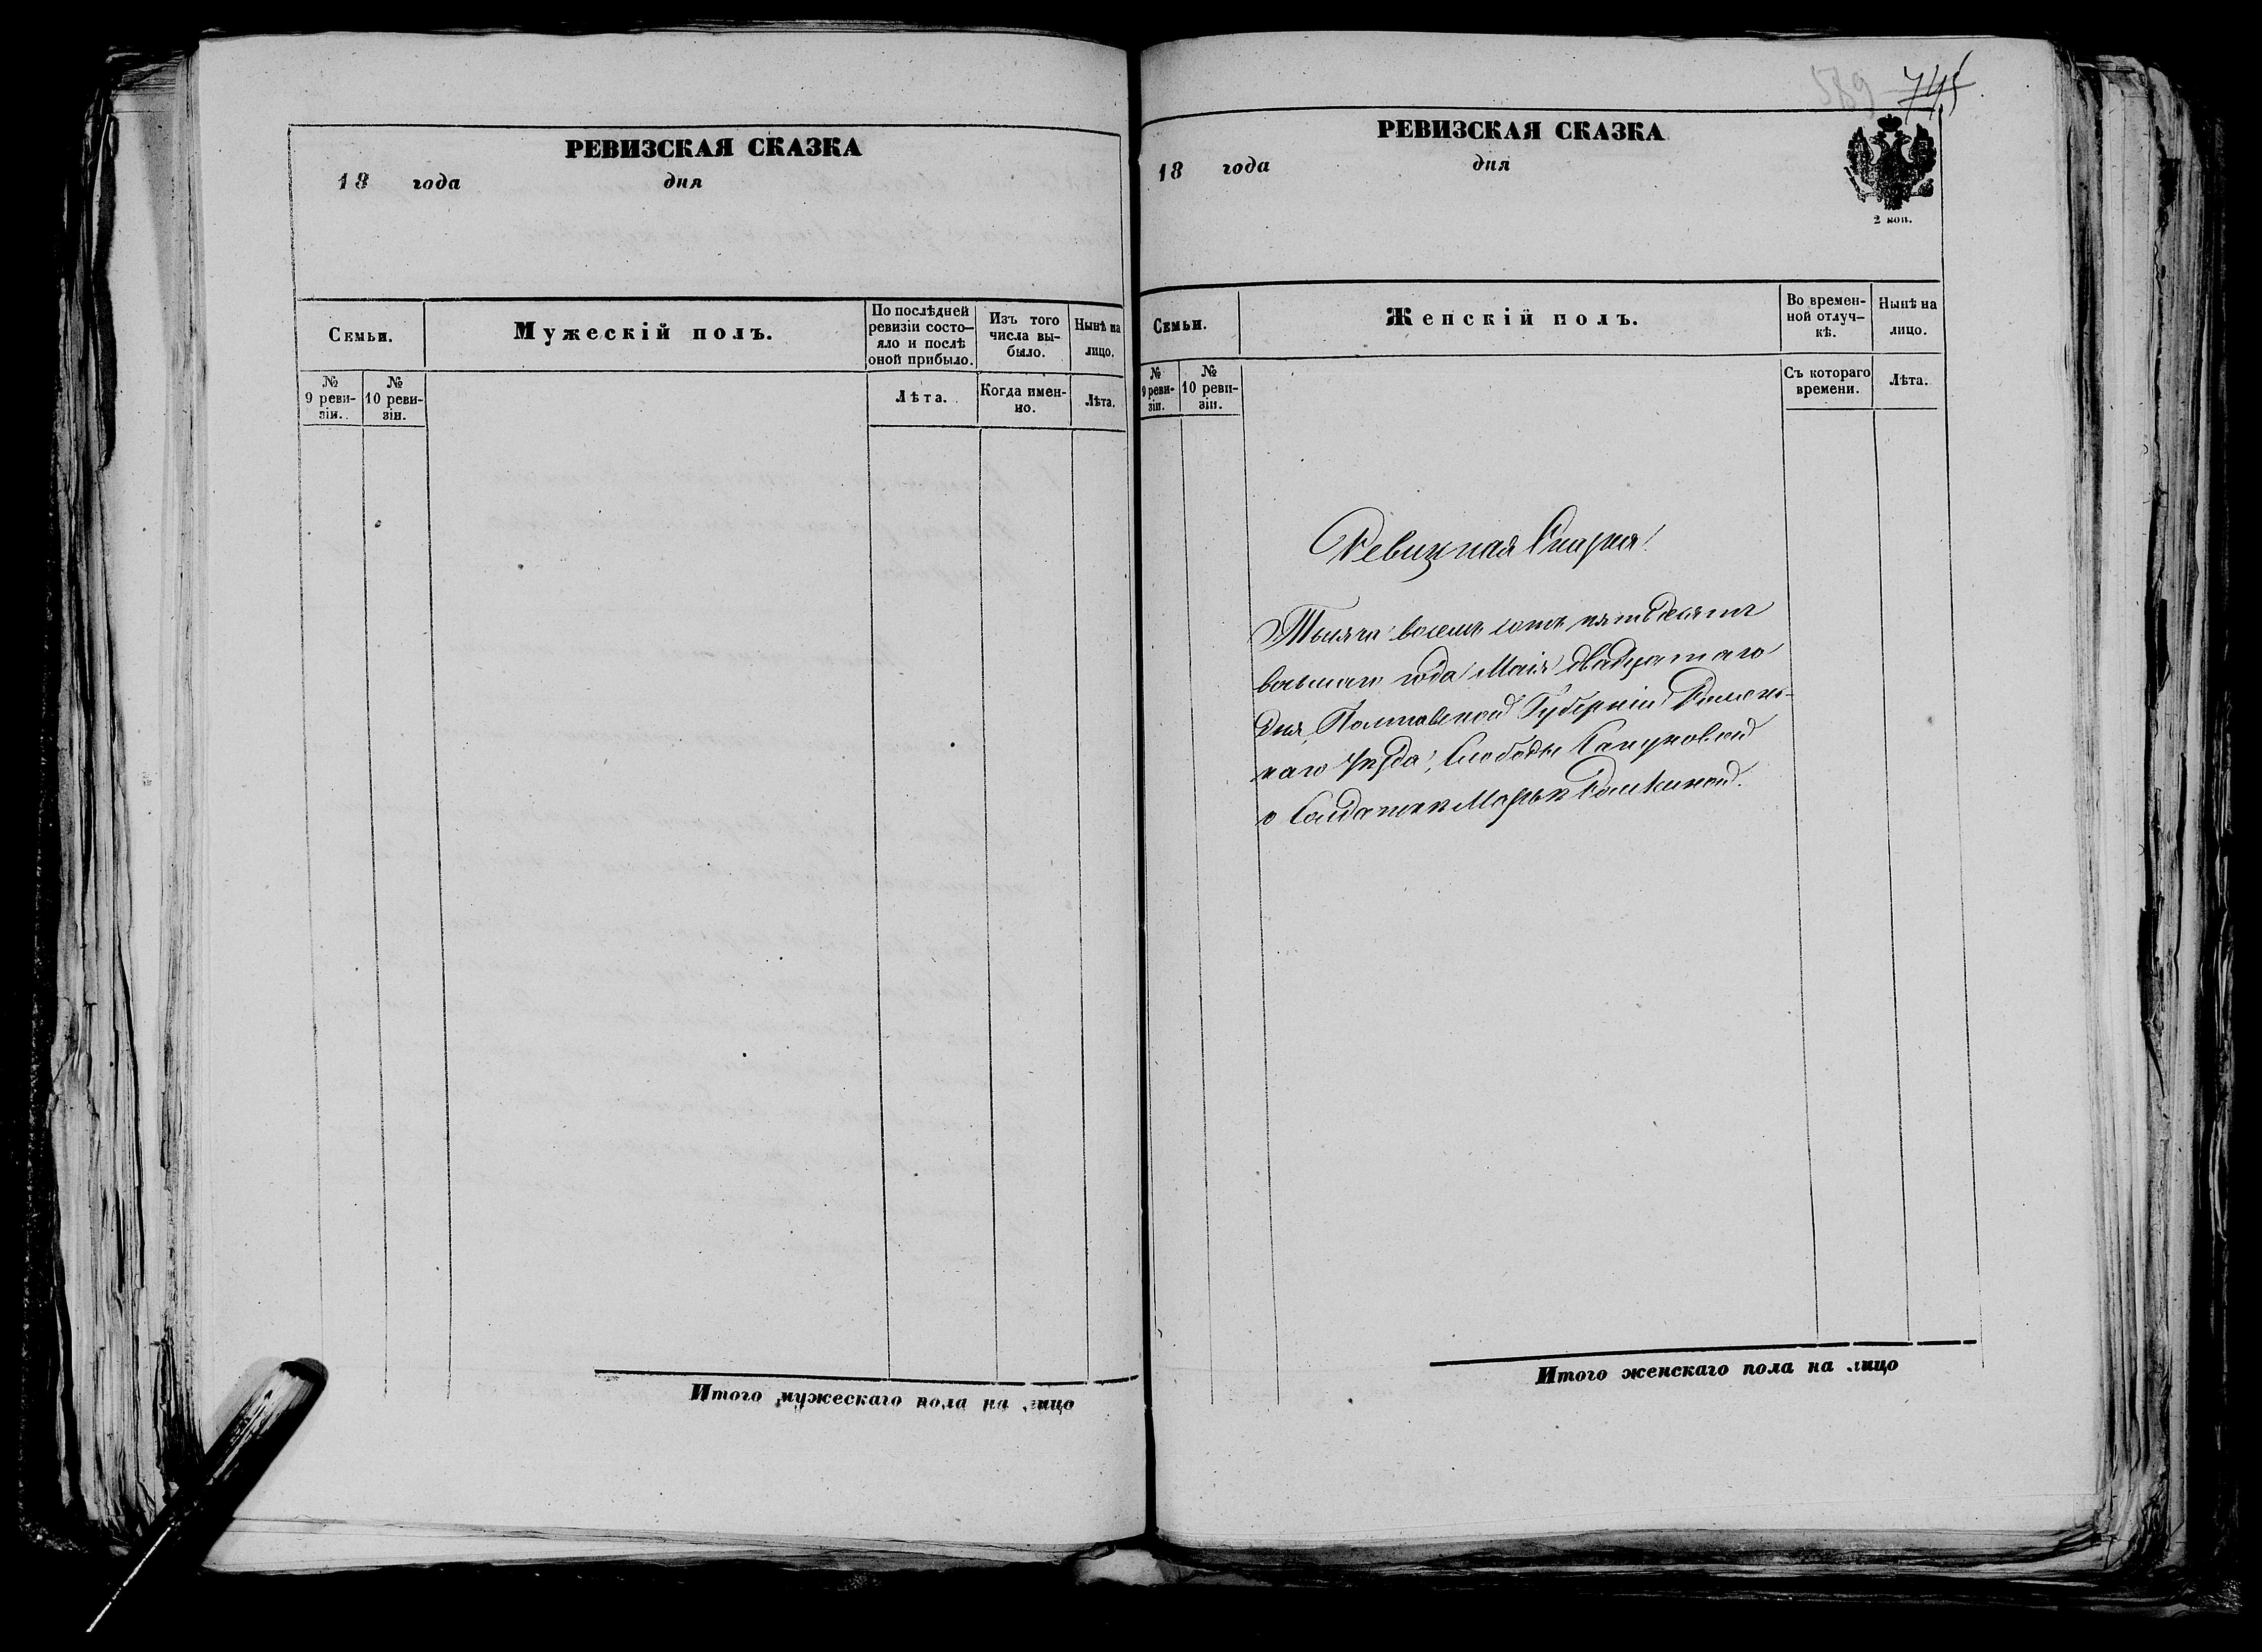 РЕВИЗСКАЯ СКАЗКА
18 года дня
Семьи.
Мужескій полъ.
По послѣдней
ревизіи состо-
яло и послѣ
оной прибыло.
Изъ того
числа вы-
было.
Нынѣ на
лицо.
№
9 реви-
зіи.
№
10 реви-
зіи.
Лѣта.
Когда имен-
но.
Лѣта.
Итого мужескаго пола на лицо
589 745
РЕВИЗСКАЯ СКАЗКА
18 года дня
2 коп.
Семьи.
Женскій полъ.
Во времен-
ной отлуч-
кѣ.
Нынѣ на
лицо.
№
9 реви-
зіи.
№
10 реви-
зіи.
Съ котораго
времени.
Лѣта.
Ревизкая Сказка
Тысяча восемь сотъ пятьдесятъ
восьмаго года Маія двадцатаго
дня, Полтавской Губерніи Роменс-
каго уѣзда, Слободы
о Солдаткѣ Марьѣ
Итого женскаго пола на лицо